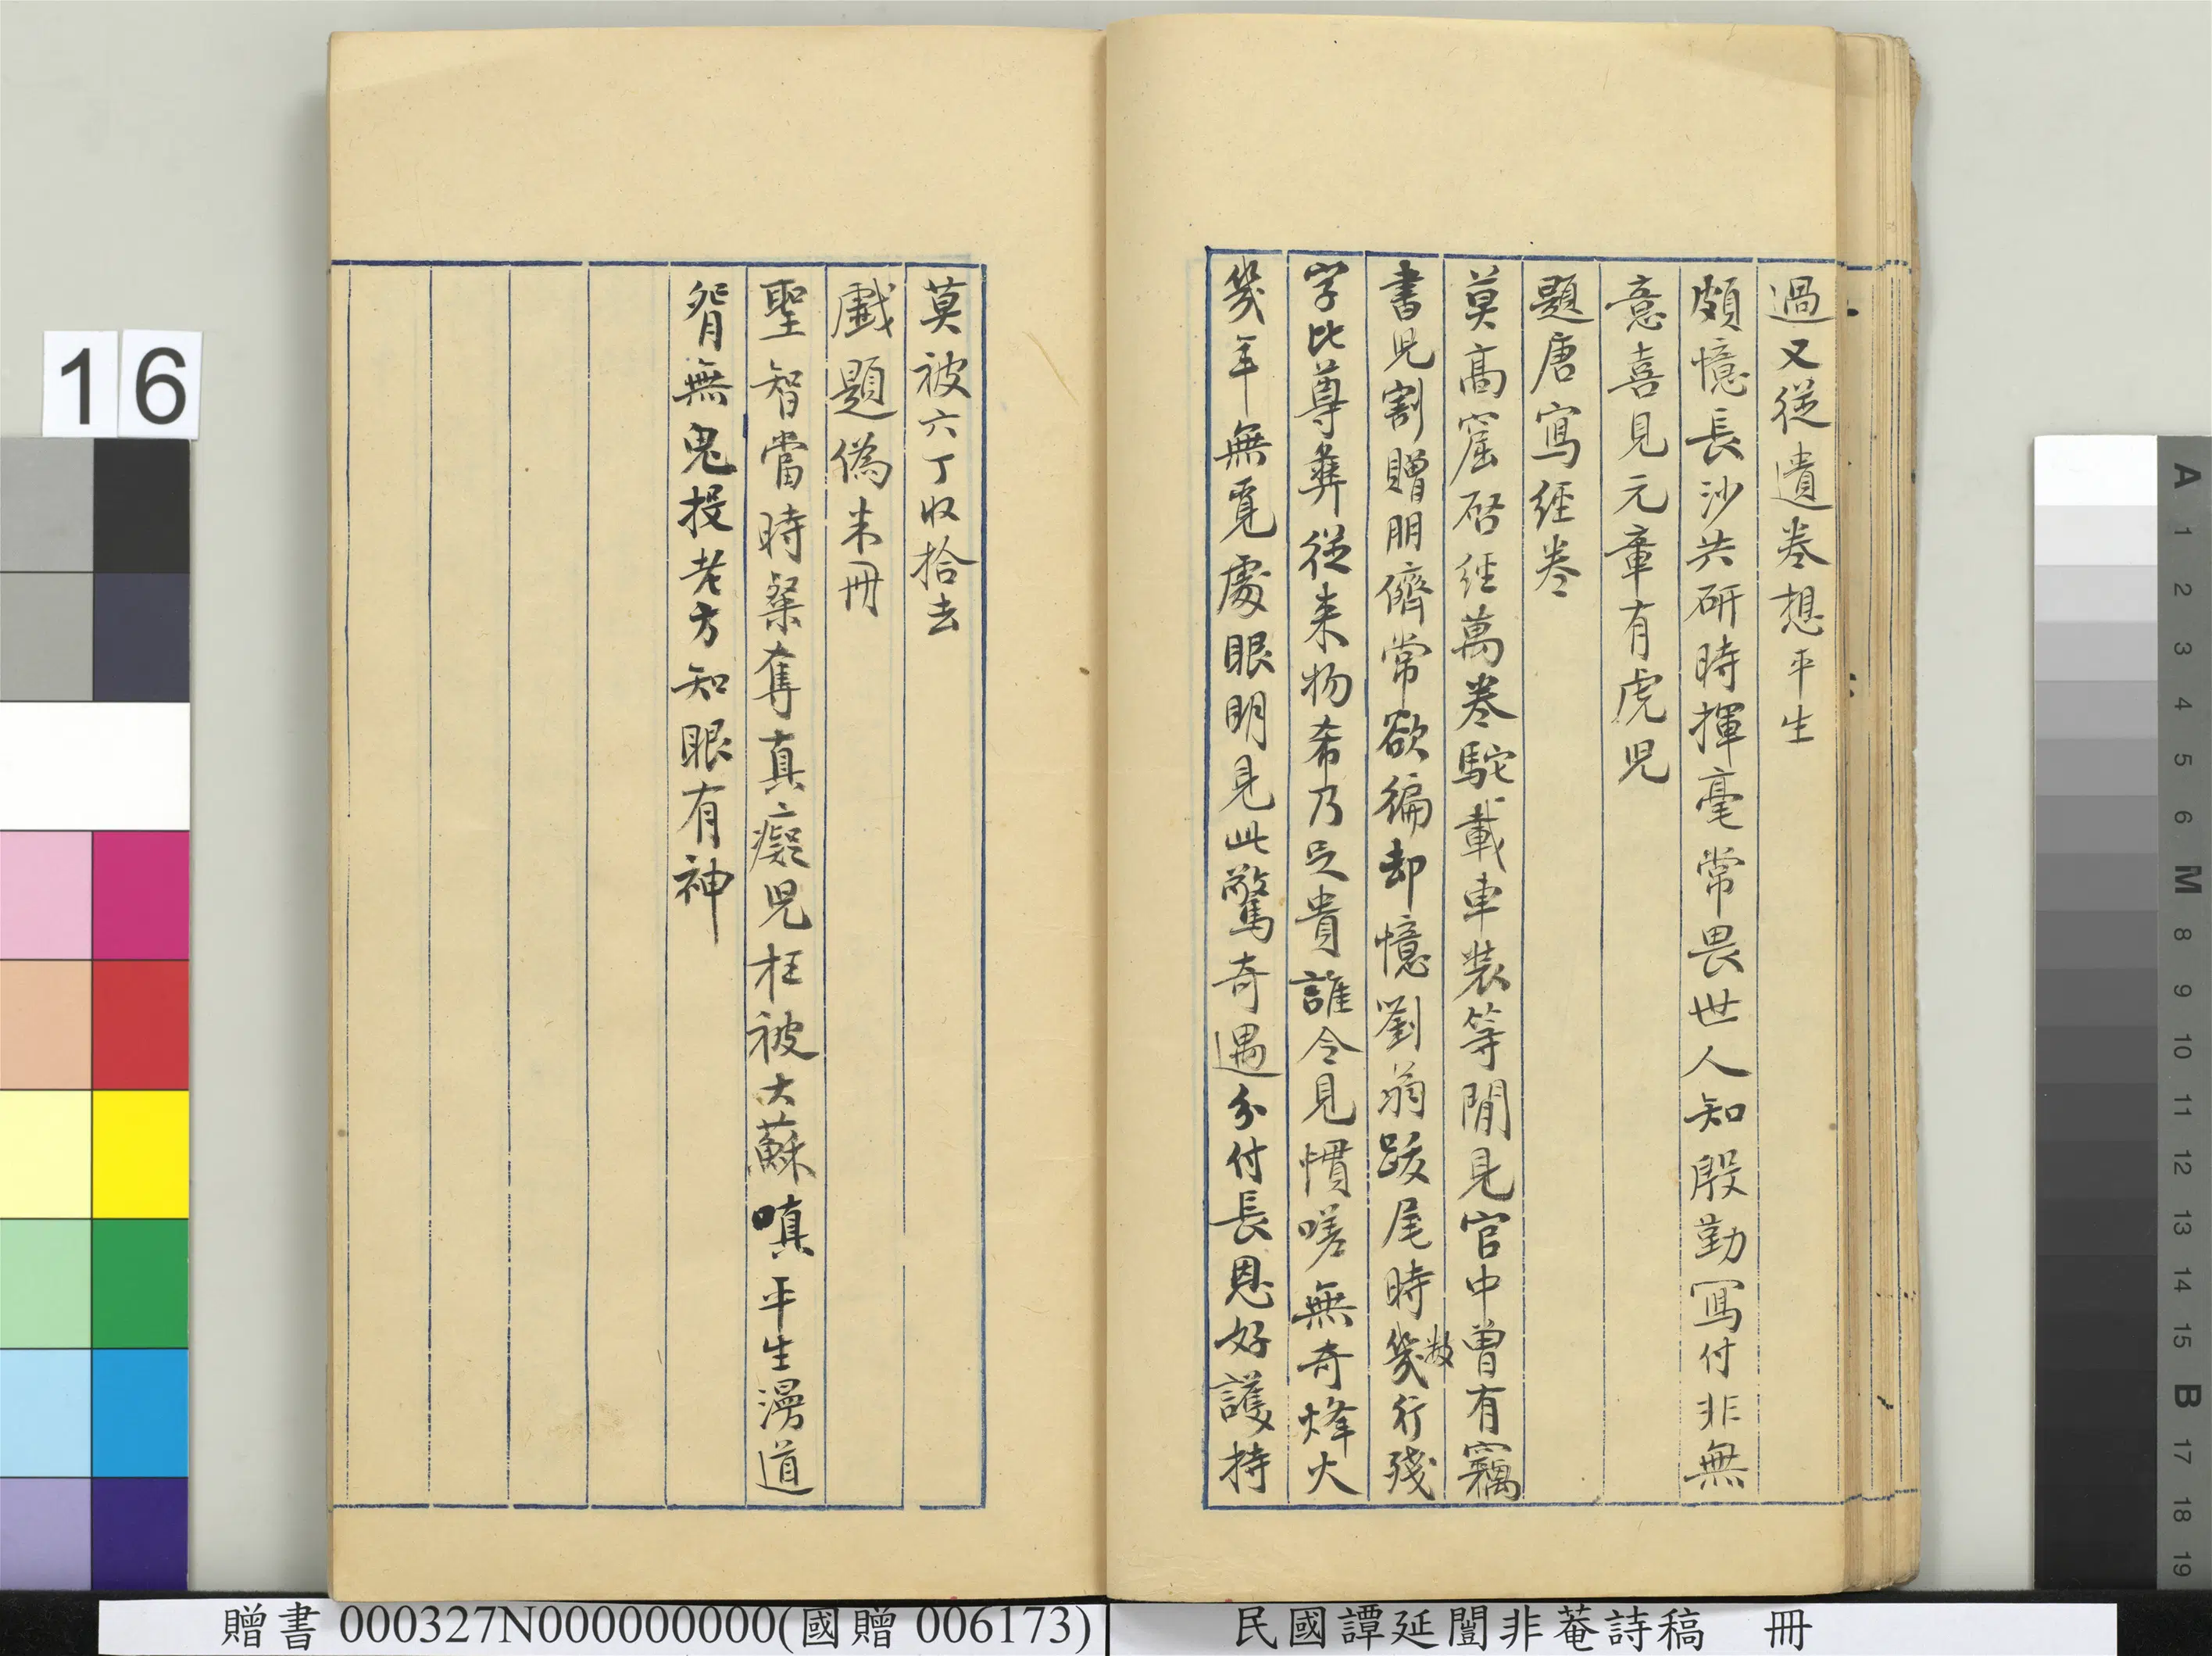 過又從遺卷想平生
頗憶長沙共研時揮毫常畏世人知殷勤寫付非無
意喜見元章有虎児
題唐寫經卷
莫高窟啓經萬卷駝載車裝等閒見官中曾有竊
書児割贈朋儕常欲徧却憶劉翁跋尾時幾行殘
數
字比尊彝從来物希乃足貴誰令見慣嗟無奇烽火
幾年無覓處眼明見此驚奇遇分付長恩好護持
莫被六丁收拾去
戲題偽米冊
聖智當時粲奪真癡児枉被大蘇嗔平生漫道
無鬼投老方知眼有神
16
A 1 2 3 4 5 6 M 8 9 10 11 12 13 14 15 B 17 18 19
贈書 000327N000000000(國贈 006173)
民國譚延闓非菴詩稿 冊